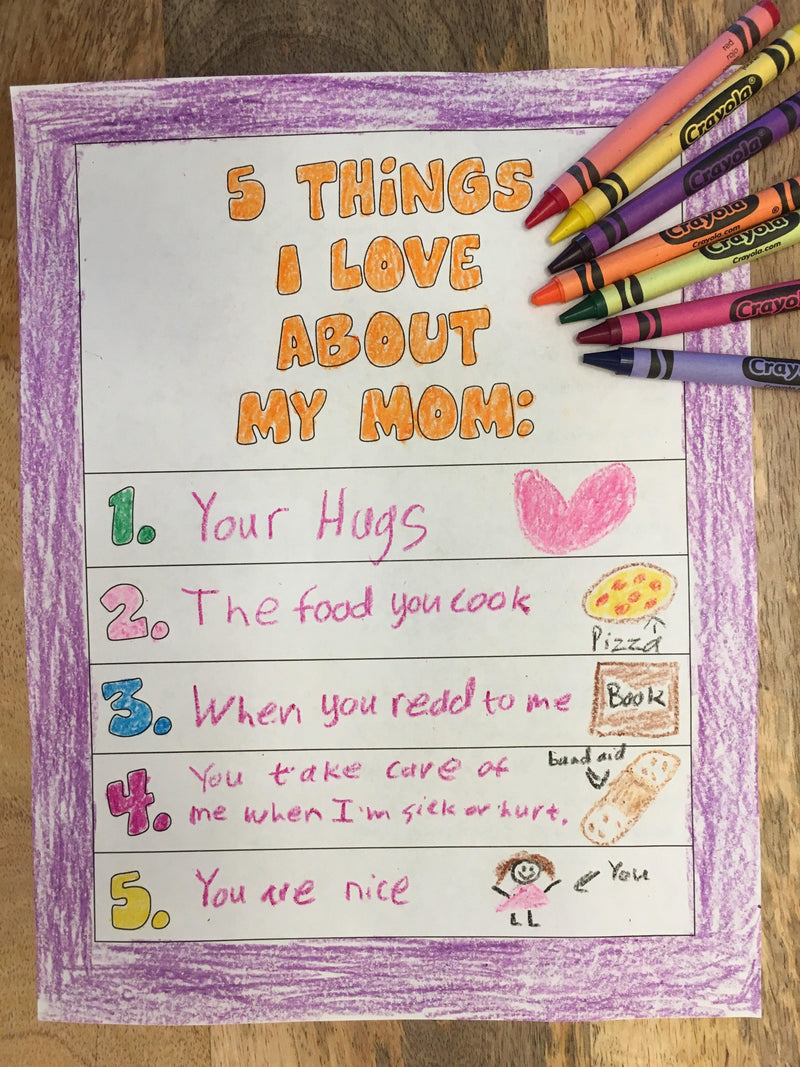 5 THiNGS
I LOVE
ABOUT
MY MOM:
1. Your Hugs
2. The food you cook
Pizza
3. When you redd to me
Book
4. You take care of
me when I'm sick or hurt.
band aid
5. You are nice
You
red
rojo
Crayola
Crayola
Crayola
Crayola.com
Crayola
Crayola.com
Crayo
Cray